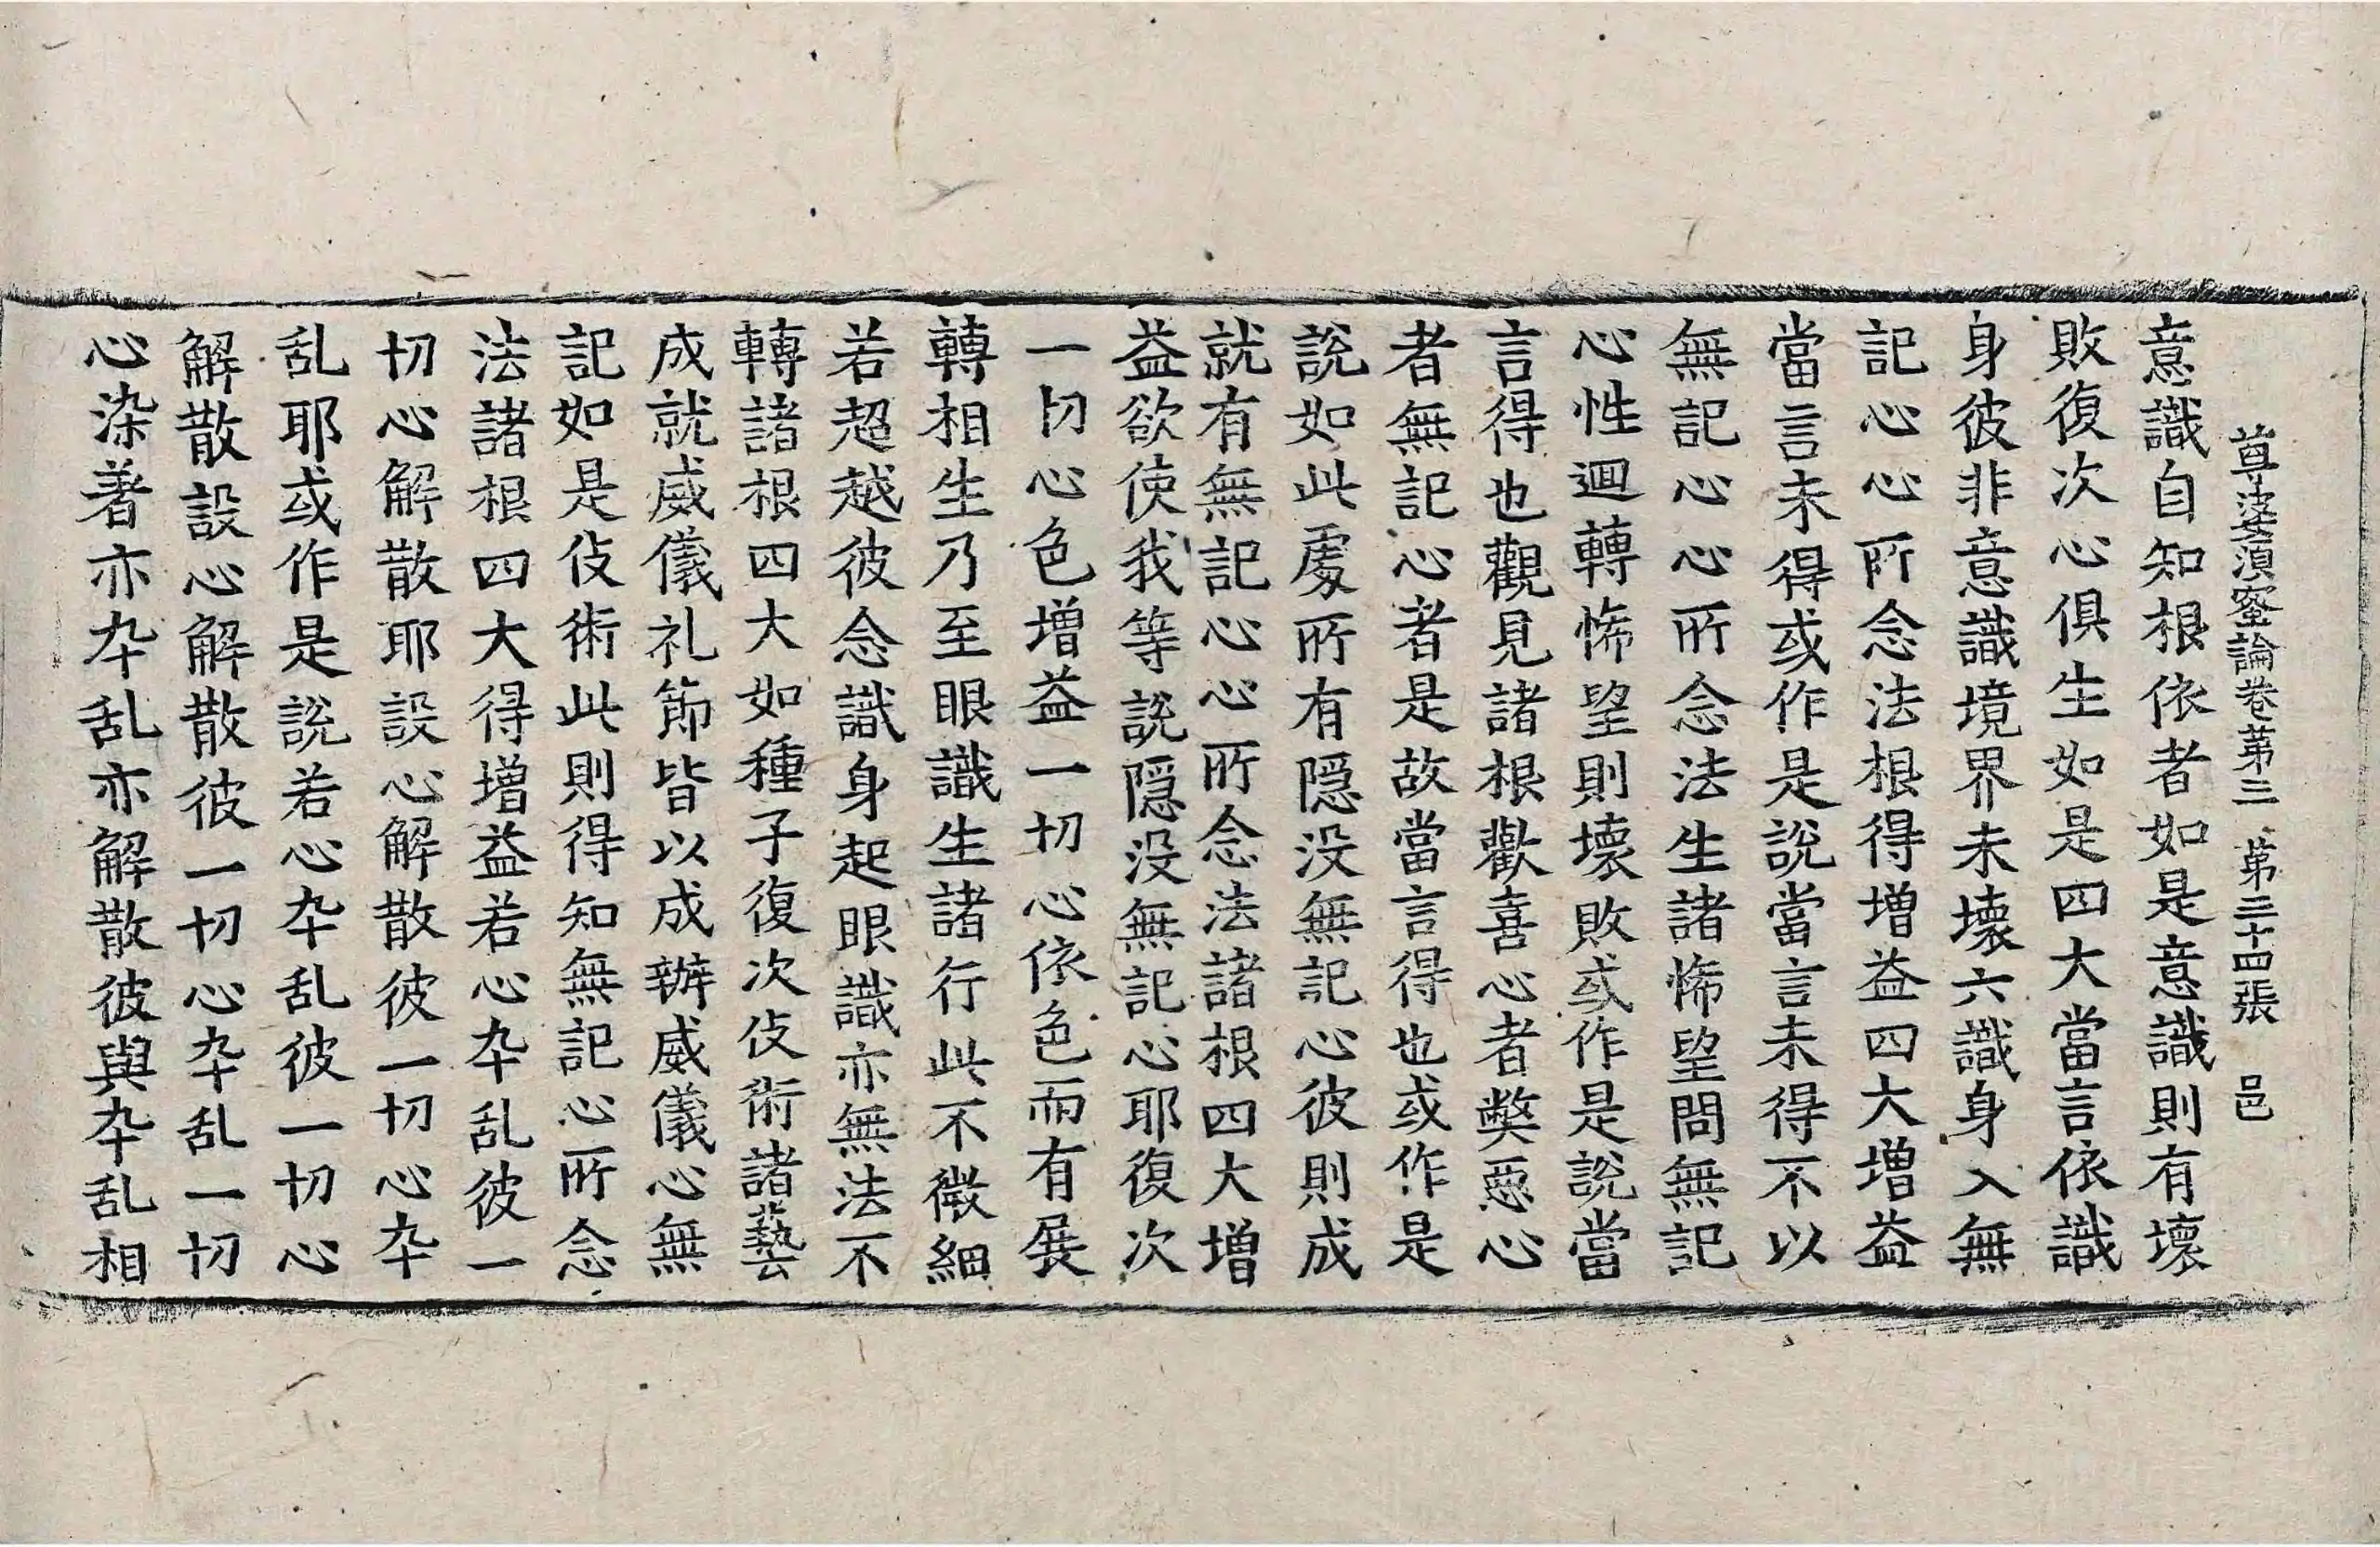 尊婆湏蜜論卷苐三 苐三十四張 邑
意識自知根依者如是意識則有壞
敗復次心俱生如是四大當言依識
身彼非意識境界未壞六識身入無
記心心所念法根得增益四大增益
當言未得或作是說當言未得不以
無記心心所念法生諸悕望問無記
心性迴轉悕望則壞敗或作是說當
言得也觀見諸根歡喜心者弊惡心
者無記心者是故當言得也或作是
說如此處所有隱没無記心彼則成
就有無記心心所念法諸根四大增
益欲使我等說隱没無記心耶復次
一切心色增益一切心依色而有展
轉相生乃至眼識生諸行此不微細
若超越彼念識身起眼識亦無法不
轉諸根四大如種子復次伎術諸藝
成就威儀礼節皆以成辦威儀心無
記如是伎術此則得知無記心所念
法諸根四大得增益若心卆乱彼一
切心解散耶設心解散彼一切心卆
乱耶或作是說若心卆乱彼一切心
解散設心解散彼一切心卆乱一切
心染著亦卆乱亦解散彼與卆乱相